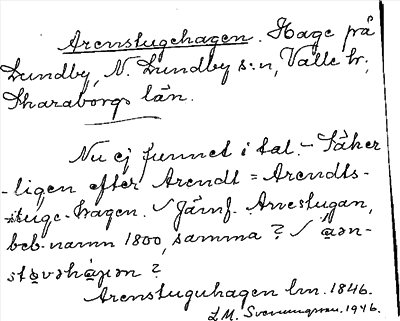 Arenstugehagen. Hage på
Lundby, N. Lundby s:n, Valle hr,
Skaraborgs län.
Nu ej funnet i tal. - Säker-
ligen efter Arendt = Arendts-
stuge-hagen. Jämf. Arvestugan,
beb-namn 1800, samma?
Arenstuguhagen lm. 1846.
L.M. Svenungsson. 1946.